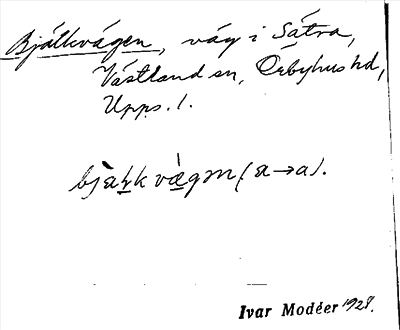 Bjälkvägen, väg i Sätra,
Västland sn, Örbyhus hd,
Upps. l.
bjaḷkvägən (a→a).
Ivar Modéer 1928.